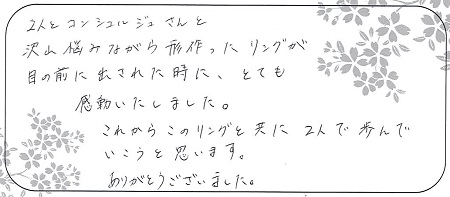 2人とコンシュルジュさんと
沢山悩みながら形作ったリングが
目の前に出された時に、とても
感動いたしました。
これからこのリングと共に2人で歩んで
いこうと思います。
ありがとうございました。